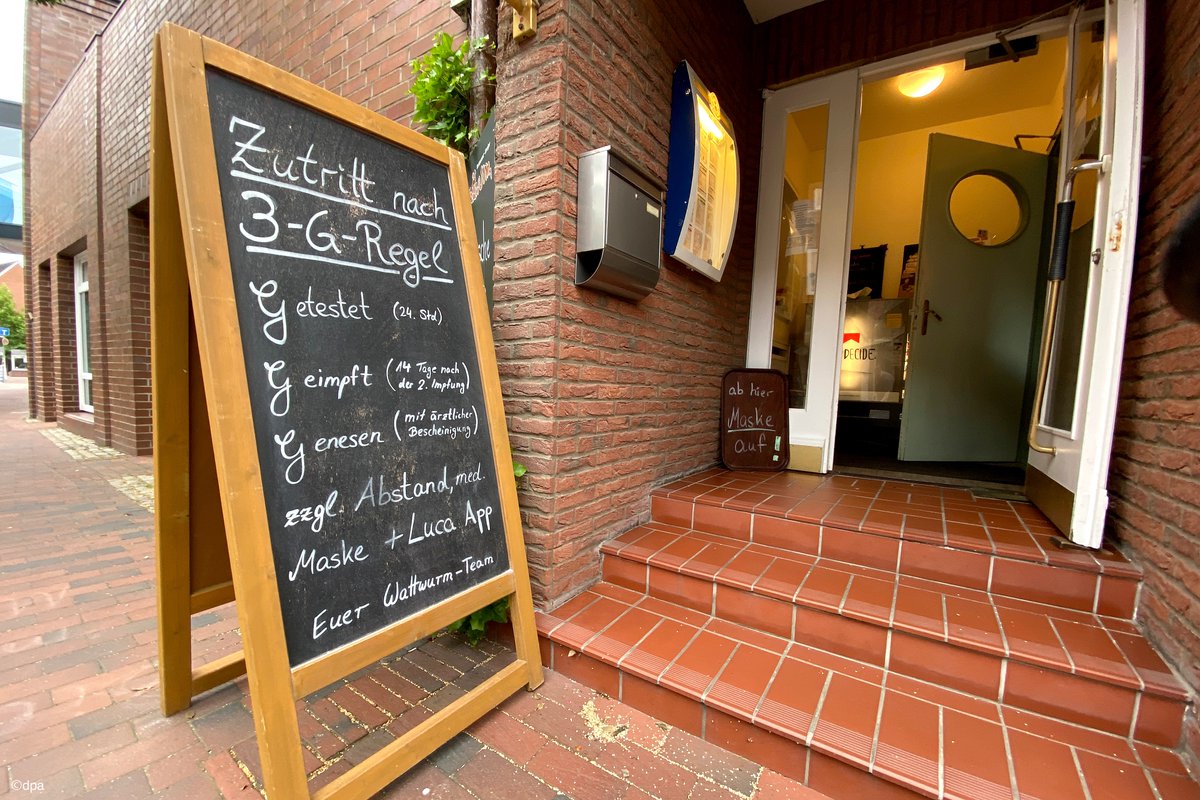 Zutritt nach
3-G-Regel
Getestet (24. Std)
Geimpft (14 Tage nach
der 2. Impfung)
Genesen (mit ärztlicher
Bescheinigung)
zzgl Abstand, med.
Maske + Luca App
Euer Wattwurm-Team
ab hier
Maske
auf
DECIDE.
©dpa